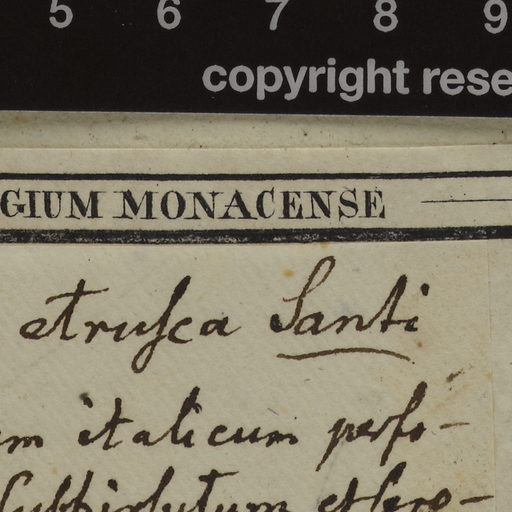 5 6 7 8 9
copyright rese
GIUM MONACENSE
etrusca Santi
em italicum perfo-